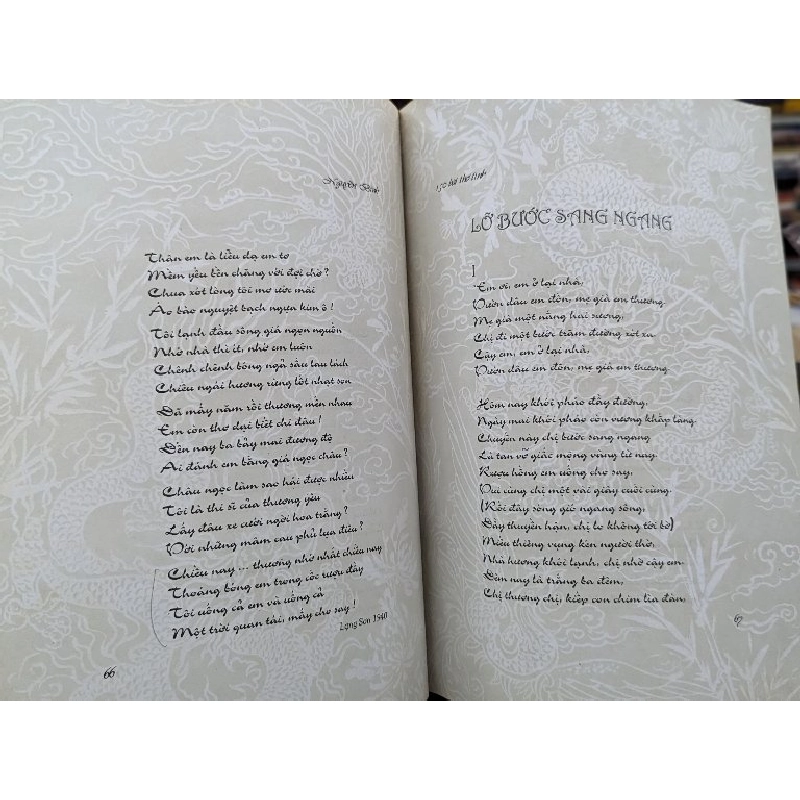 Nguyễn Bính
Thân em là liễu dạ em tơ
Mềm yếu bên chàng với đợi chờ?
Chưa xót lòng tôi mơ ước mãi
Áo bào nguyệt bạch ngựa kim ô!
Tôi lạnh đầu sông giá ngọn nguồn
Nhớ nhà thì ít, nhớ em luôn
Chênh chếnh bóng ngả sầu lau lách
Chiều ngái hương rừng lốt nhạt son
Đã mấy năm rồi thương mến nhau
Em còn thơ dại biết chi đâu!
Đến nay ba bảy mai đương độ
Ai đánh em bằng giá ngọc châu?
Châu ngọc làm sao hái được nhiều
Tôi là thi sĩ của thương yêu
Lấy đâu xe cưới ngời hoa trắng?
Với những mâm cau phủ lụa điều?
Chiều nay ... thương nhớ nhất chiều nay
Thoáng bóng em trong cốc rượu đầy
Tôi uống cả em và uống cả
Một trời quan tái, mấy cho say!
Lạng Sơn 1940
66
150 bài thơ tình
LỠ BƯỚC SANG NGANG
1
Em ơi, em ở lại nhà,
Vườn dâu em đốn, mẹ già em thương.
Mẹ già một nắng hai sương,
Chị đi một bước trăm đường xót xa.
Cậy em, em ở lại nhà,
Vườn dâu em đốn, mẹ già em thương.
Hôm nay khói pháo đầy đường,
Ngày mai khói pháo còn vương khắp làng.
Chuyến này chị bước sang ngang
Là tan vỡ giấc mộng vàng từ nay.
Rượu hồng em uống cho say,
Vui cùng chị một vài giây cuối cùng.
(Rồi đây sóng gió ngang sông,
Đầy thuyền hận, chị lo không tới bờ)
Miếu thiêng vụng kén người thờ,
Nhà hương khói lạnh, chị nhờ cậy em.
Đêm nay là trắng ba đêm,
Chị thương chị, kiếp con chim lìa đàn,
67